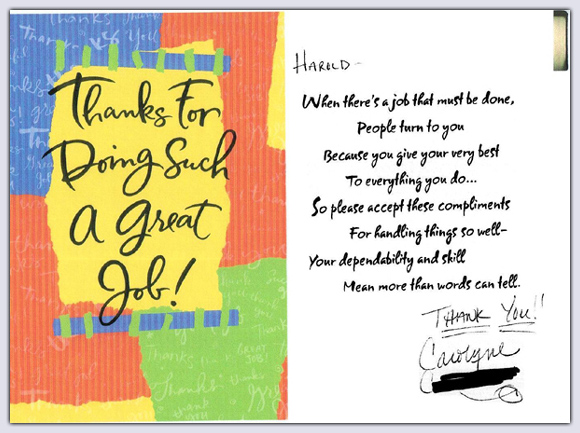 Thanks For
Doing Such
A Great
Job!
HAROLD-
When there's a job that must be done,
People turn to you
Because you give your very best
To everything you do...
So please accept these compliments
For handling things so well-
Your dependability and skill
Mean more than words can tell.
THANK YOU!!
Carolyne